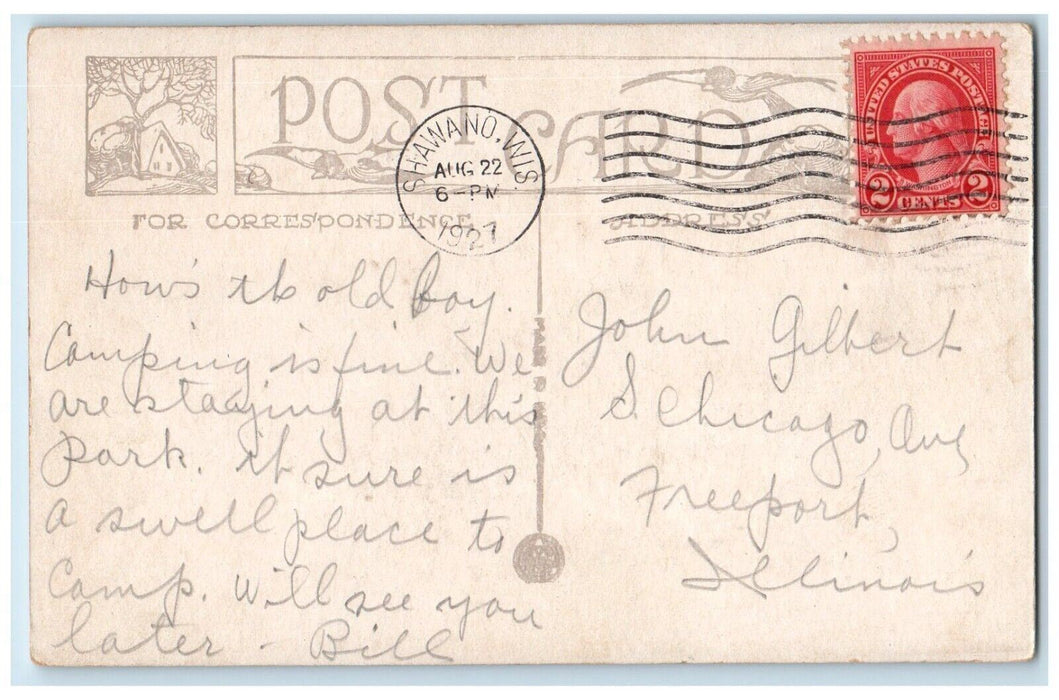 POST CARD
SHAWANO, WIS.
AUG 22
6-PM
1927
UNITED STATES POSTAGE
WASHINGTON
2 CENTS 2
FOR CORRESPONDENCE
ADDRESS
How's th old boy.
Camping is fine. We
are staaying at this
park. it sure is
a swell place to
Camp. Will see you
later - Bill
John Gilbert
S. Chicago, Ave,
Freeport,
Illinois